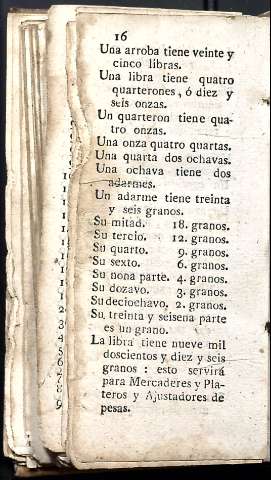 16
Una arroba tiene veinte y
cinco libras.
Una libra tiene quatro
quarterones, ó diez y
seis onzas.
Un quarteron tiene qua-
tro onzas.
Una onza quatro quartas.
Una quarta dos ochavas.
Una ochava tiene dos
adarmes.
Un adarme tiene treinta
y seis granos.
Su mitad. 18. granos.
Su tercio. 12. granos.
Su quarto. 9. granos.
Su sexto. 6. granos.
Su nona parte. 4. granos.
Su dozavo. 3. granos.
Su deciochavo, 2. granos.
Su treinta y seisena parte
es un grano.
La libra tiene nueve mil
doscientos y diez y seis
granos : esto servirá
para Mercaderes y Pla-
teros y Ajustadores de
pesas.
1
1
1
1
1
1
2
3
4
5
6
7
8
9